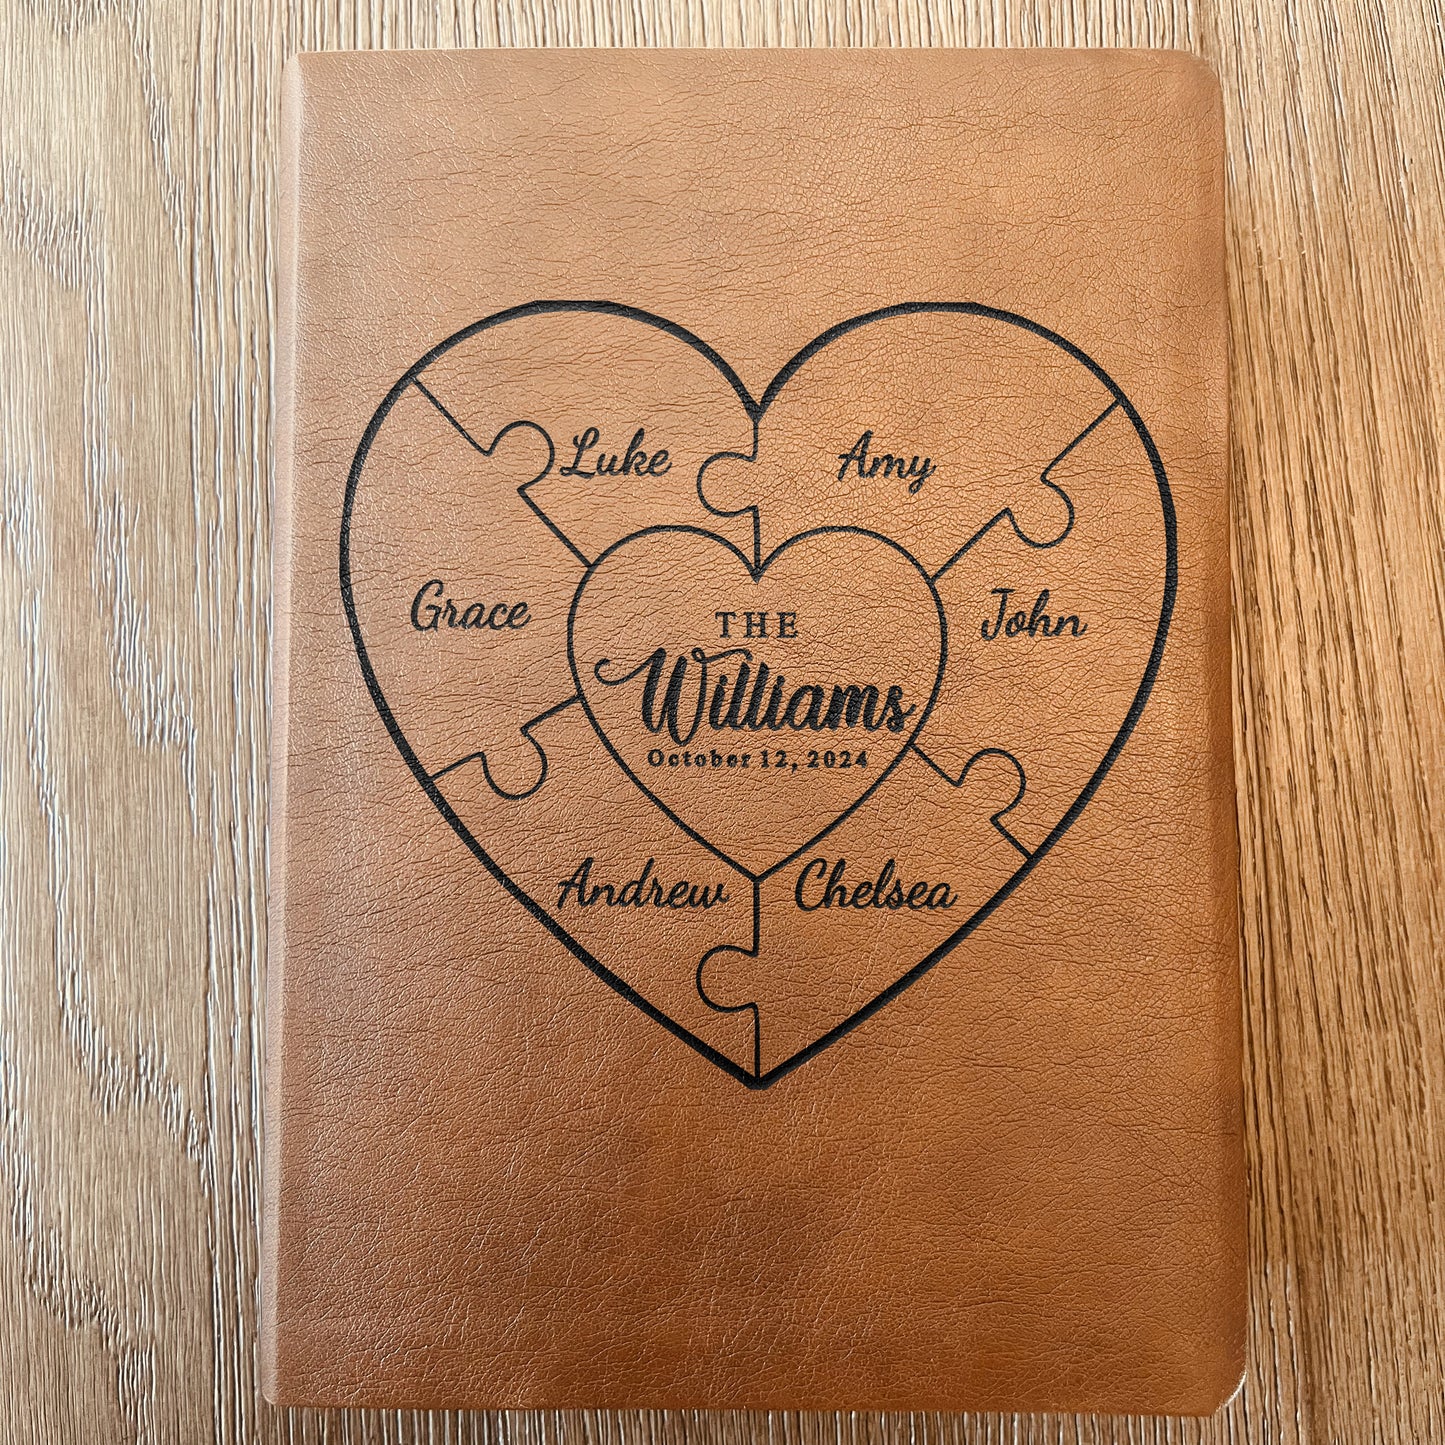 Luke
Amy
Grace
John
THE
Williams
October 12, 2024
Andrew
Chelsea